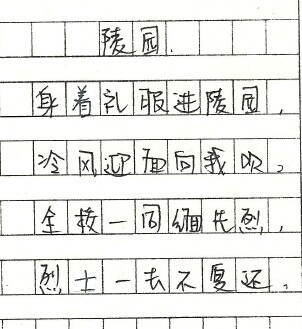 陵园.
身着礼服进陵园,
冷风迎面向我吹,
全校一同缅先烈,
烈士一去不复还。